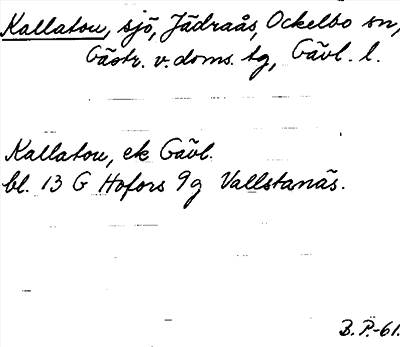 Kallaton, sjö, Jädraås, Ockelbo sn,
Gästr. v. doms. tg, Gävl. l.
Kallaton, ek Gävl.
bl. 13 G Hofors 9g Vallstanäs.
B.P.-61.